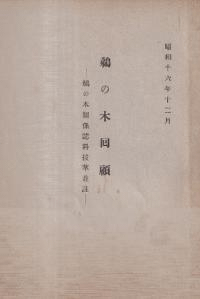 昭和十六年十二月
鵜の木回顧
―鵜の木関係諸料抜萃並註―